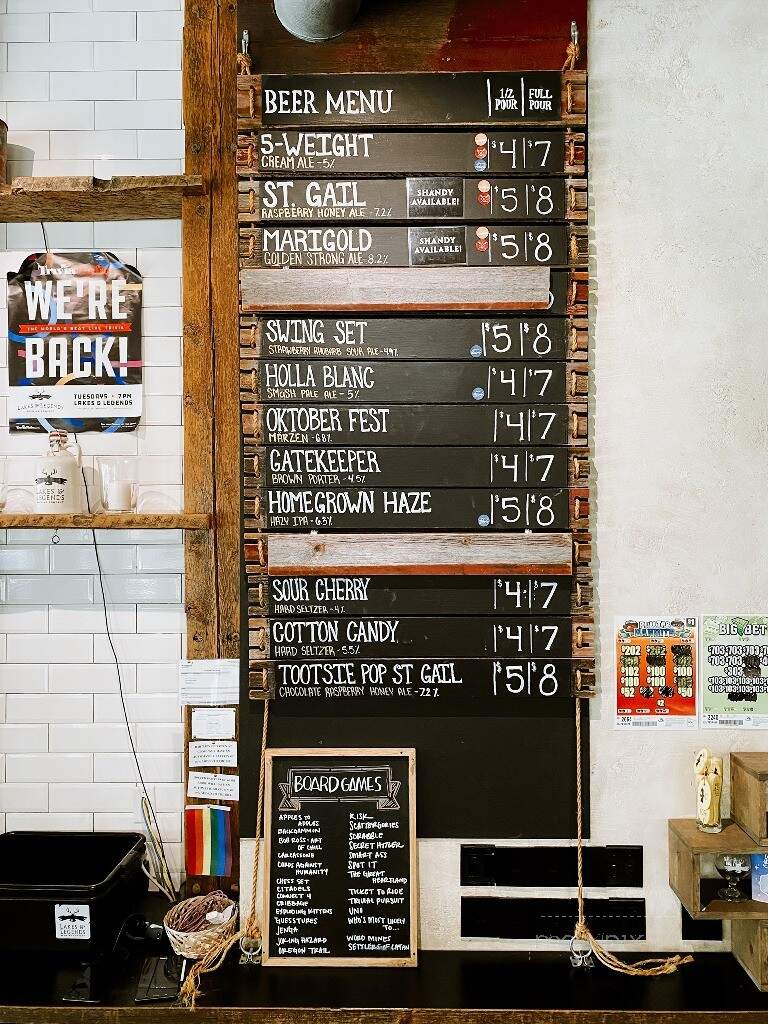 BEER MENU
1/2 POUR
FULL POUR
5-WEIGHT $4 $7
CREAM ALE - 5%
ST. GAIL SHANDY AVAILABLE! $5 $8
RASPBERRY HONEY ALE - 7.2%
MARIGOLD SHANDY AVAILABLE! $5 $8
GOLDEN STRONG ALE - 8.2%
SWING SET $5 $8
STRAWBERRY RHUBARB SOUR ALE - 4.9%
HOLLA BLANC $4 $7
SMASH PALE ALE - 5%
OKTOBER FEST $4 $7
MARZEN - 6.8%
GATEKEEPER $4 $7
BROWN PORTER - 4.5%
HOMEGROWN HAZE $5 $8
HAZY IPA - 6.3%
SOUR CHERRY $4 $7
HARD SELTZER - 4%
COTTON CANDY $4 $7
HARD SELTZER - 5.5%
TOOTSIE POP ST GAIL $5 $8
CHOCOLATE RASPBERRY HONEY ALE - 7.2%
WE'RE
THE WORLD'S BEST LIVE TRIVIA
BACK!
LAKES & LEGENDS
TUESDAYS • 7PM
LAKES & LEGENDS
LAKES &
LEGENDS
BOARD GAMES
APPLES TO
APPLES
BACKGAMMON
BOB ROSS: ART
OF CHILL
CARCASSONE
CARDS AGAINST
HUMANITY
CHESS SET
CITADELS
CONNECT 4
CRIBBAGE
EXPLODING KITTENS
GUESSTURES
JENGA
JOKING HAZARD
OREGON TRAIL
RISK
SCATTERGORIES
SCRABBLE
SECRET HITLER
SMART ASS
SPOT IT
THE GREAT
HEARTLAND
TICKET TO RIDE
TRIVIAL PURSUIT
UNO
WHO'S MOST LIKELY
TO...
WORD MINES
SETTLERS OF CATAN
LAKES &
LEGENDS
$1
$202
$102
$100
$52
$2
2061
BIG BET
$703
2240